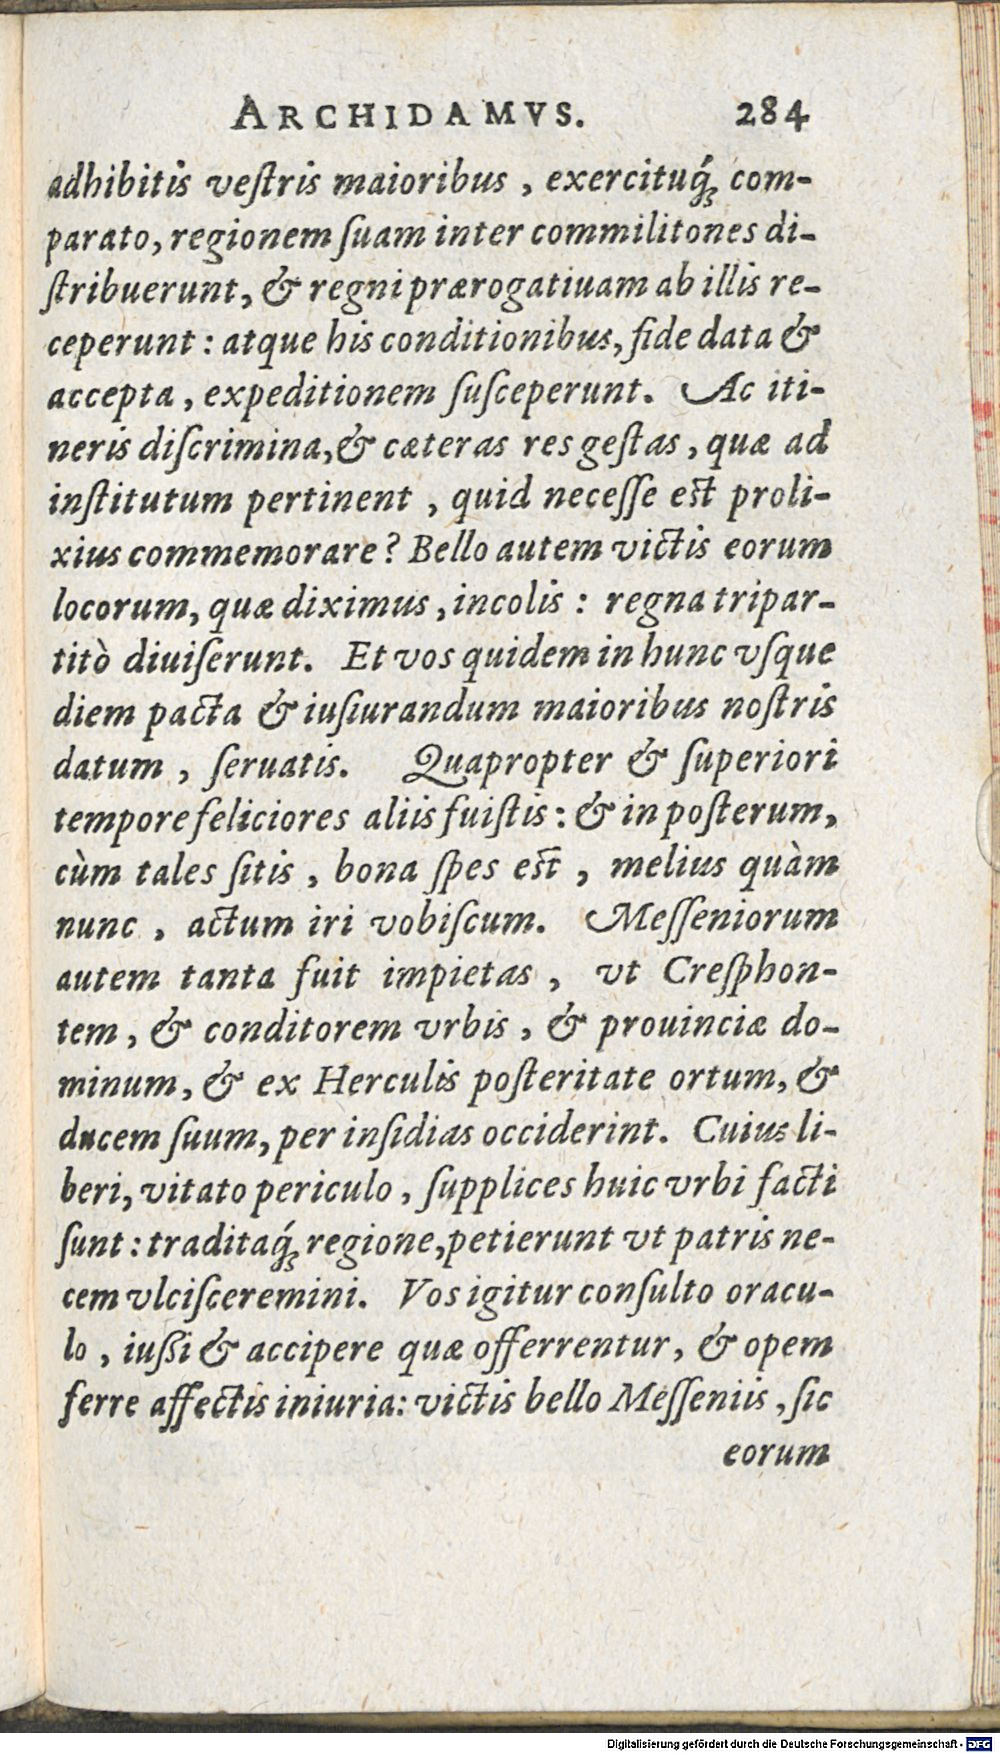 ARCHIDAMVS. 284
adhibitis veſtris maioribus, exercituq́ꝫ com-
parato, regionem ſuam inter commilitones di-
ſtribuerunt, & regni prærogatiuam ab illis re-
ceperunt: atque his conditionibus, fide data &
accepta, expeditionem ſuſceperunt. Ac iti-
neris diſcrimina, & cæteras res geſtas, quæ ad
inſtitutum pertinent, quid neceſſe eſt proli-
xius commemorare? Bello autem victis eorum
locorum, quæ diximus, incolis: regna tripar-
titò diuiſerunt. Et vos quidem in hunc vſque
diem pacta & iuſiurandum maioribus noſtris
datum, ſeruatis. Quapropter & ſuperiori
tempore feliciores aliis fuiſtis: & in poſterum,
cùm tales ſitis, bona ſpes eſt, melius quàm
nunc, actum iri vobiſcum. Meſſeniorum
autem tanta fuit impietas, vt Creſphon-
tem, & conditorem vrbis, & prouinciæ do-
minum, & ex Herculis poſteritate ortum, &
ducem ſuum, per inſidias occiderint. Cuius li-
beri, vitato periculo, ſupplices huic vrbi facti
ſunt: traditaq́ꝫ regione, petierunt vt patris ne-
cem vlciſceremini. Vos igitur conſulto oracu-
lo, iuſſi & accipere quæ offerrentur, & opem
ferre affectis iniuria: victis bello Meſſeniis, ſic
eorum
Digitalisierung gefördert durch die Deutsche Forschungsgemeinschaft - DFG